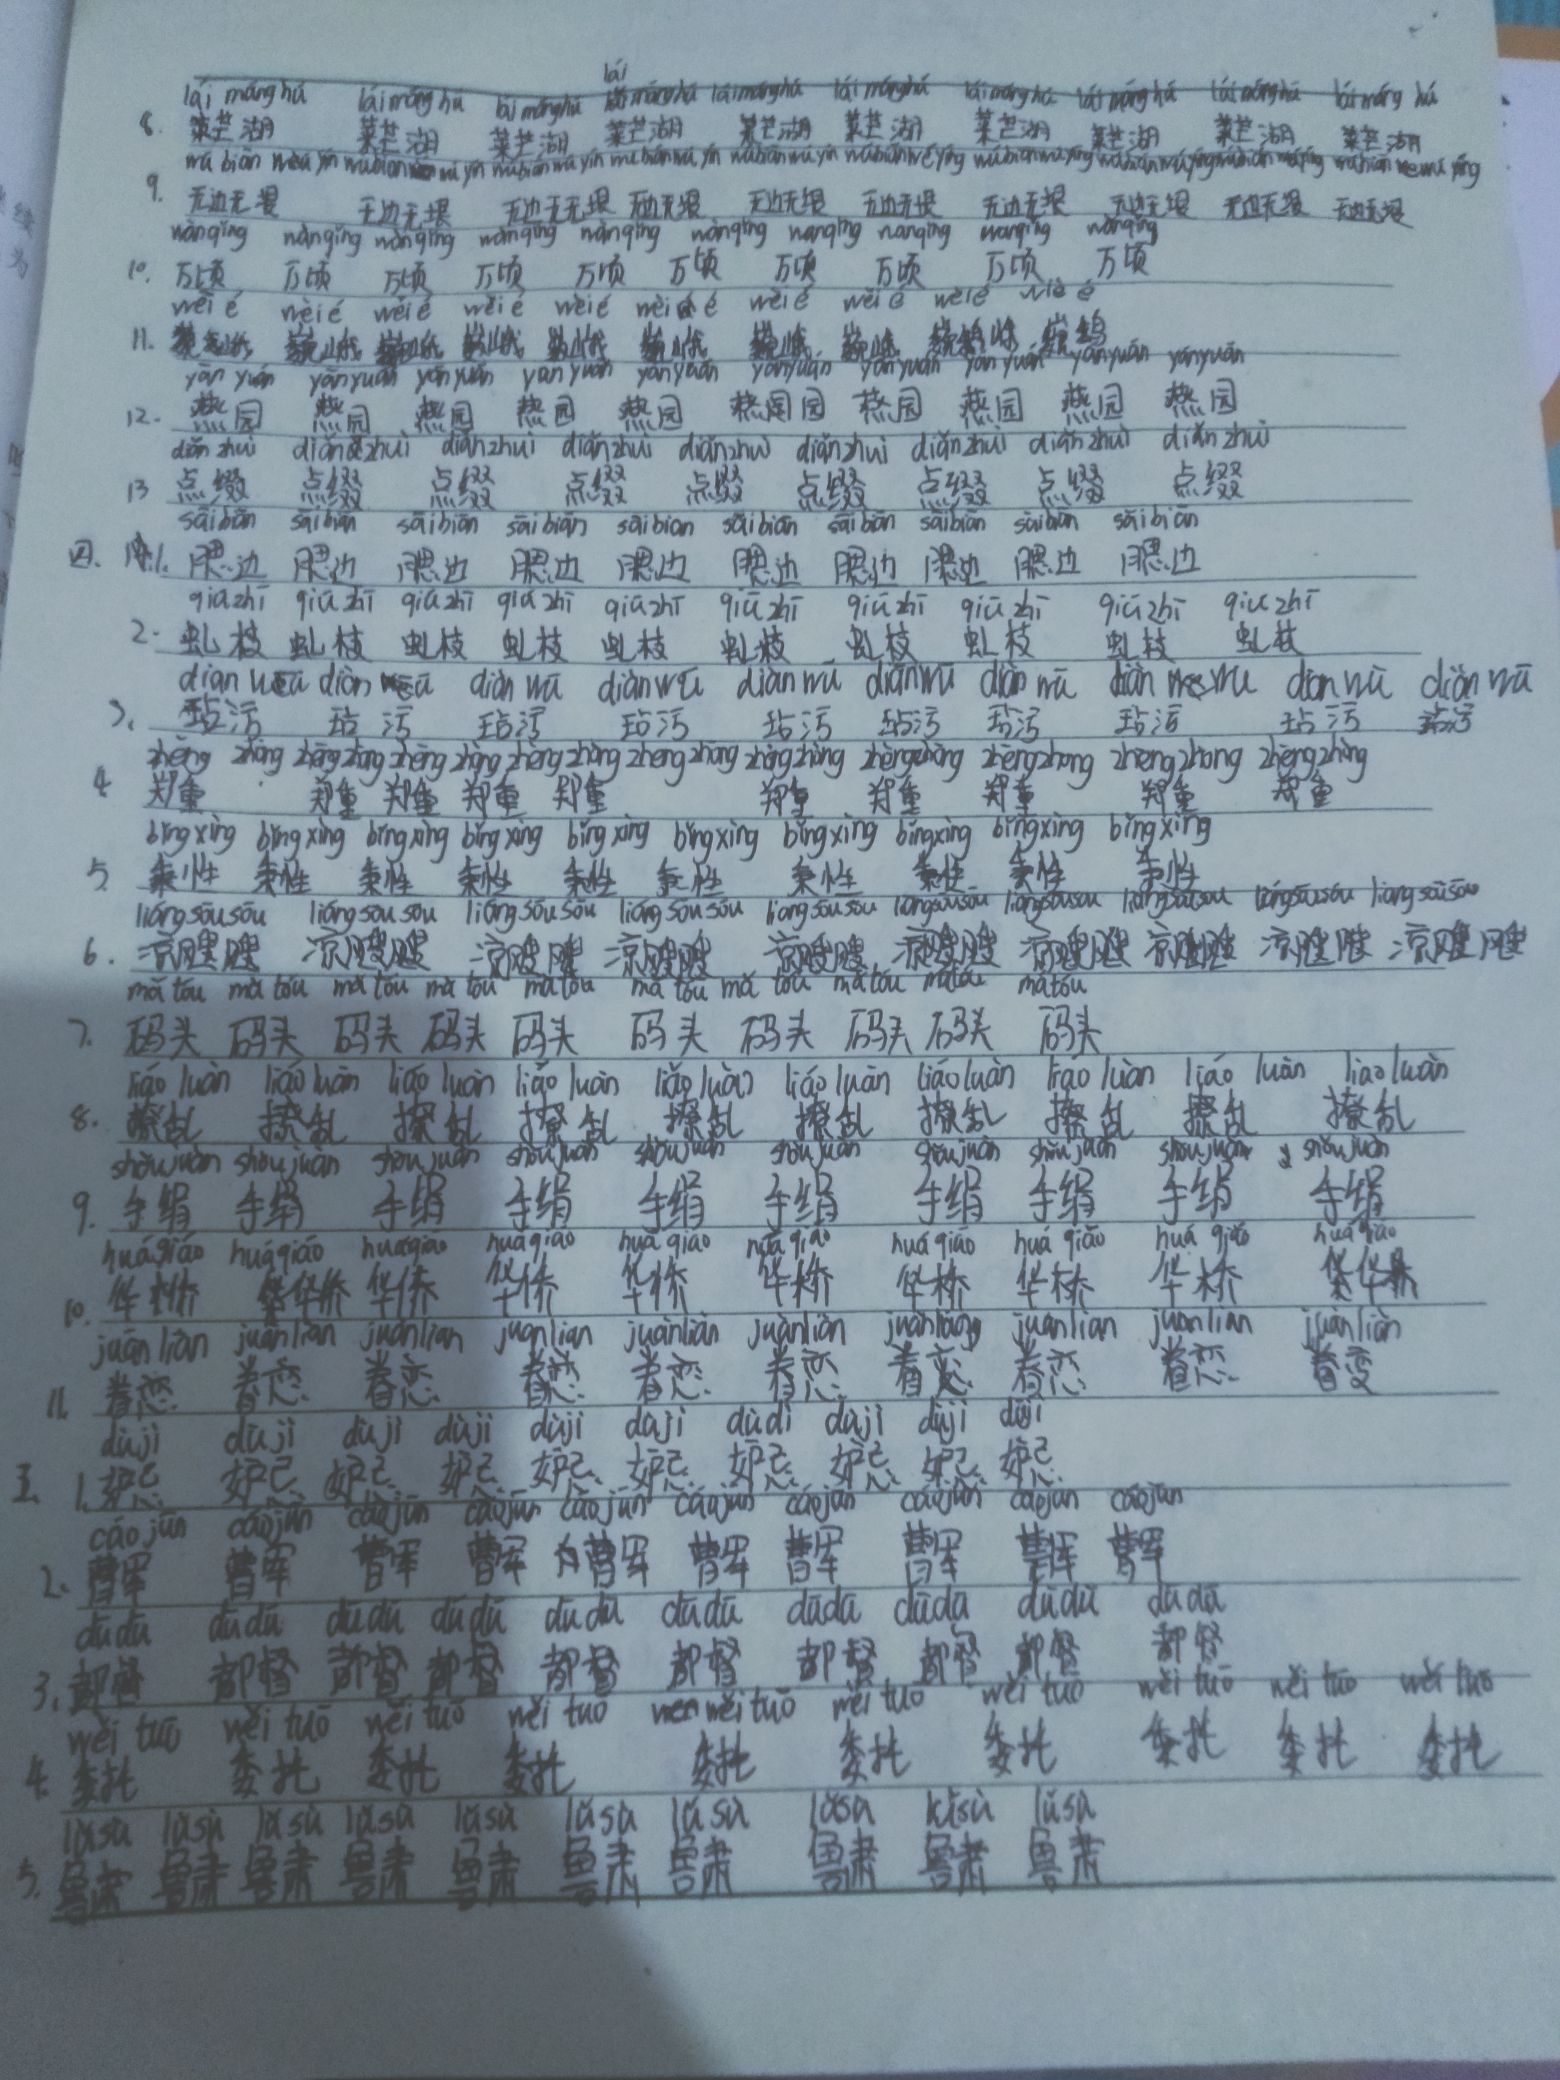 lái máng hú lái máng hú lái máng hú lái máng hú lái máng hú lái máng hú lái máng hú lái máng hú lái máng hú lái máng hú
8. 莱芒湖 莱芒湖 莱芒湖 莱芒湖 莱芒湖 莱芒湖 莱芒湖 莱芒湖 莱芒湖 莱芒湖
9. 无边无垠 无边无垠 无边无无垠 无边无垠 无边无垠 无边无垠 无边无垠 无边无垠 无边无垠 无边无垠
wànqǐng wànqǐng wànqǐng wànqǐng wànqǐng wànqǐng wànqǐng wànqǐng wànqǐng wànqǐng
10. 万顷 万顷 万顷 万顷 万顷 万顷 万顷 万顷 万顷 万顷
wēi é wēi é wēi é wēi é wēi é wēi é wēi é wēi é wēi é
11. 巍峨 巍峨 巍峨 巍峨 巍峨 巍峨 巍峨
yān yuán yān yuán yān yuán yān yuán yān yuán yān yuán yān yuán yān yuán yān yuán yān yuán
12. 燕园 燕园 燕园 燕园 燕园 燕园 燕园 燕园 燕园
diǎn zhuì diǎn zhuì diǎn zhuì diǎn zhuì diǎn zhuì diǎn zhuì diǎn zhuì diǎn zhuì diǎn zhuì
13 点缀 点缀 点缀 点缀 点缀 点缀 点缀 点缀 点缀
sāi biān sāi biān sāi biān sāi biān sāi biān sāi biān sāi biān sāi biān sāi biān sāi biān
四. 1. 腮边 腮边 腮边 腮边 腮边 腮边 腮边 腮边 腮边 腮边
qiú zhī qiú zhī qiú zhī qiú zhī qiú zhī qiú zhī qiú zhī qiú zhī qiú zhī qiú zhī
2. 虬枝 虬枝 虬枝 虬枝 虬枝 虬枝 虬枝 虬枝 虬枝 虬枝
3. 玷污 玷污 玷污 玷污 玷污 玷污 玷污 玷污 玷污 玷污
zhèng zhòng zhèng zhòng zhèng zhòng zhèng zhòng zhèng zhòng zhèng zhòng zhèng zhòng zhèng zhòng zhèng zhòng zhèng zhòng
4. 郑重 郑重 郑重 郑重 郑重 郑重 郑重 郑重 郑重 郑重
bǐng xìng bǐng xìng bǐng xìng bǐng xìng bǐng xìng bǐng xìng bǐng xìng bǐng xìng bǐng xìng bǐng xìng
5. 秉性 秉性 秉性 秉性 秉性 秉性 秉性 秉性 秉性 秉性
liáng sōu sōu liáng sōu sōu liáng sōu sōu liáng sōu sōu liáng sōu sōu liáng sōu sōu liáng sōu sōu liáng sōu sōu liáng sōu sōu liáng sōu sōu
6. 凉飕飕 凉飕飕 凉飕飕 凉飕飕 凉飕飕 凉飕飕 凉飕飕 凉飕飕 凉飕飕 凉飕飕
mǎ tóu mǎ tóu mǎ tóu mǎ tóu mǎ tóu mǎ tóu mǎ tóu mǎ tóu mǎ tóu mǎ tóu
7. 码头 码头 码头 码头 码头 码头 码头 码头 码头 码头
liáo luàn liáo luàn liáo luàn liáo luàn liáo luàn liáo luàn liáo luàn liáo luàn liáo luàn liáo luàn
8. 撩乱 撩乱 撩乱 撩乱 撩乱 撩乱 撩乱 撩乱 撩乱 撩乱
shǒu juàn shǒu juàn shǒu juàn shǒu juàn shǒu juàn shǒu juàn shǒu juàn shǒu juàn shǒu juàn shǒu juàn
9. 手绢 手绢 手绢 手绢 手绢 手绢 手绢 手绢 手绢 手绢
huá qiáo huá qiáo huá qiáo huá qiáo huá qiáo huá qiáo huá qiáo huá qiáo huá qiáo huá qiáo
10. 华桥 华侨 华侨 华侨 华桥 华桥 华桥 华桥 华桥
juàn liàn juàn liàn juàn liàn juàn liàn juàn liàn juàn liàn juàn liàn juàn liàn juàn liàn
11. 眷恋 眷恋 眷恋 眷恋 眷恋 眷恋 眷恋 眷恋 眷恋
dù jì dù jì dù jì dù jì dù jì dù jì dù dì dù jì dù jì dù jì
五. 1. 妒忌 妒忌 妒忌 妒忌 妒忌 妒忌 妒忌 妒忌 妒忌 妒忌
cáo jūn cáo jūn cáo jūn cáo jūn cáo jūn cáo jūn cáo jūn cáo jūn cáo jūn cáo jūn
2. 曹军 曹军 曹军 曹军 曹军 曹军 曹军 曹军 曹军 曹军
dū dū dū dū dū dū dū dū dū dū dū dū dū dū dū dū dū dū dū dū
3. 都督 都督 都督 都督 都督 都督 都督 都督 都督 都督
wěi tuō wěi tuō wěi tuō wěi tuō wěi tuō wěi tuō wěi tuō wěi tuō wěi tuō wěi tuō
4. 委托 委托 委托 委托 委托 委托 委托 委托 委托 委托
lǔ sù lǔ sù lǔ sù lǔ sù lǔ sù lǔ sù lǔ sù lǔ sù lǔ sù lǔ sù
5. 鲁肃 鲁肃 鲁肃 鲁肃 鲁肃 鲁肃 鲁肃 鲁肃 鲁肃 鲁肃